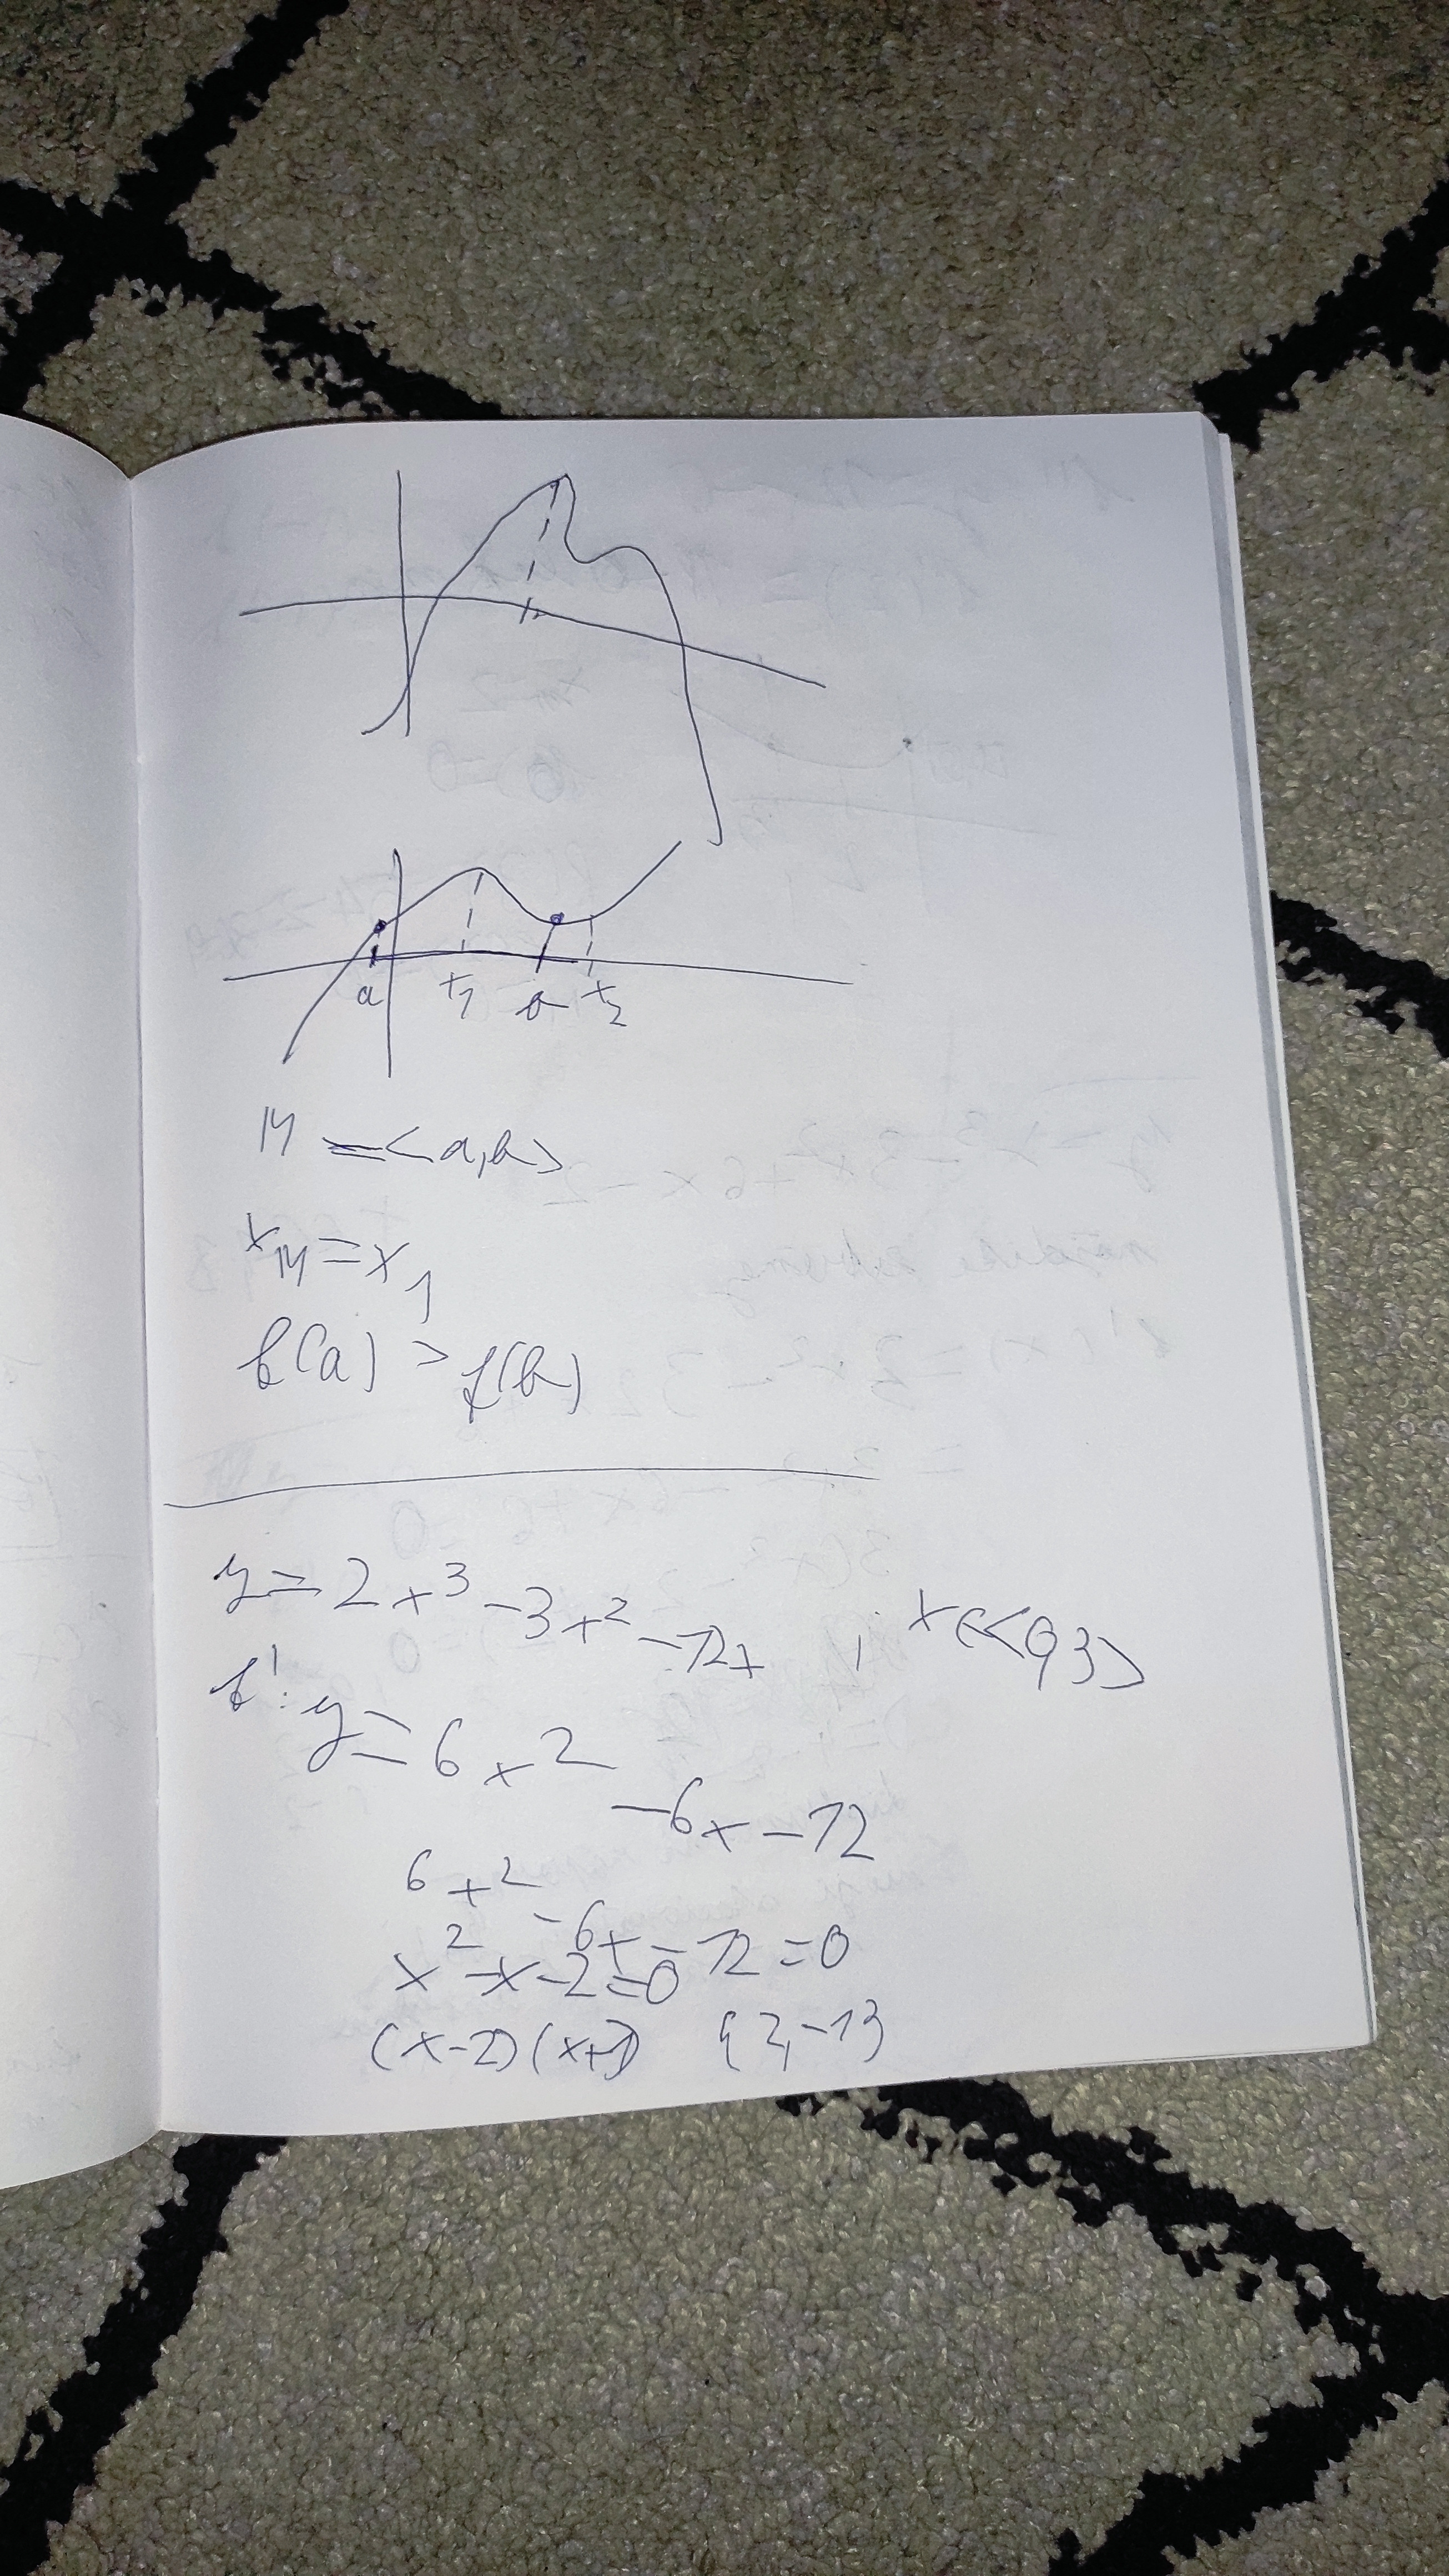 a x₁ b x₂
M = <a,b>
x_M = x₁
f(a) > f(b)
y = 2x³ - 3x² - 12x ; x ∈ <0,3>
f': y = 6x² - 6x - 12
6x² - 6x - 12 = 0
x² - x - 2 = 0
(x-2)(x+1) {2,-1}